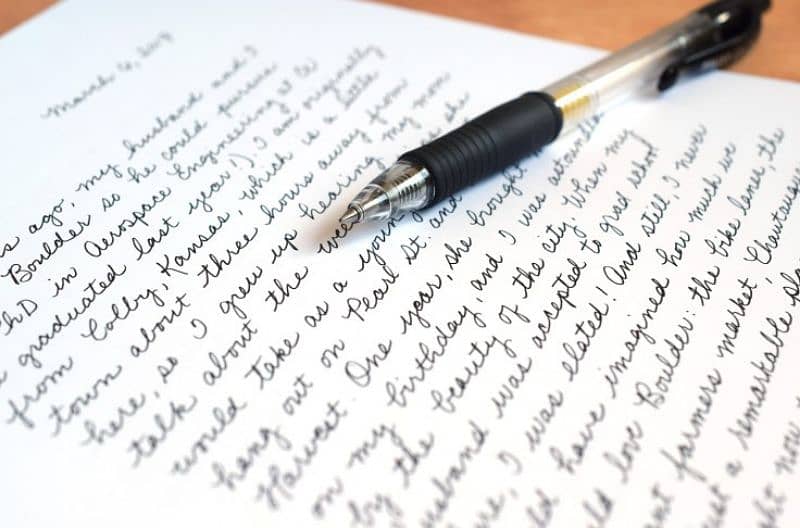 March 6, 2017
s ago, my husband and I
Boulder so he could pursue
PhD in Aerospace Engineering at CU
graduated last year!). I am originally
from Colby, Kansas, which is a little
town about three hours away from
here, so I grew up hearing my mom
talk about the
would take as a young
hang out on Pearl St. and
Harvest. One year, she brought
on my birthday, and I was astounded
by the beauty of the city. When my
husband was accepted to grad school
I was elated! And still, I never
have imagined how much we
love Boulder: the bike lanes, the
farmers market, Chautauqua
a remarkable
now